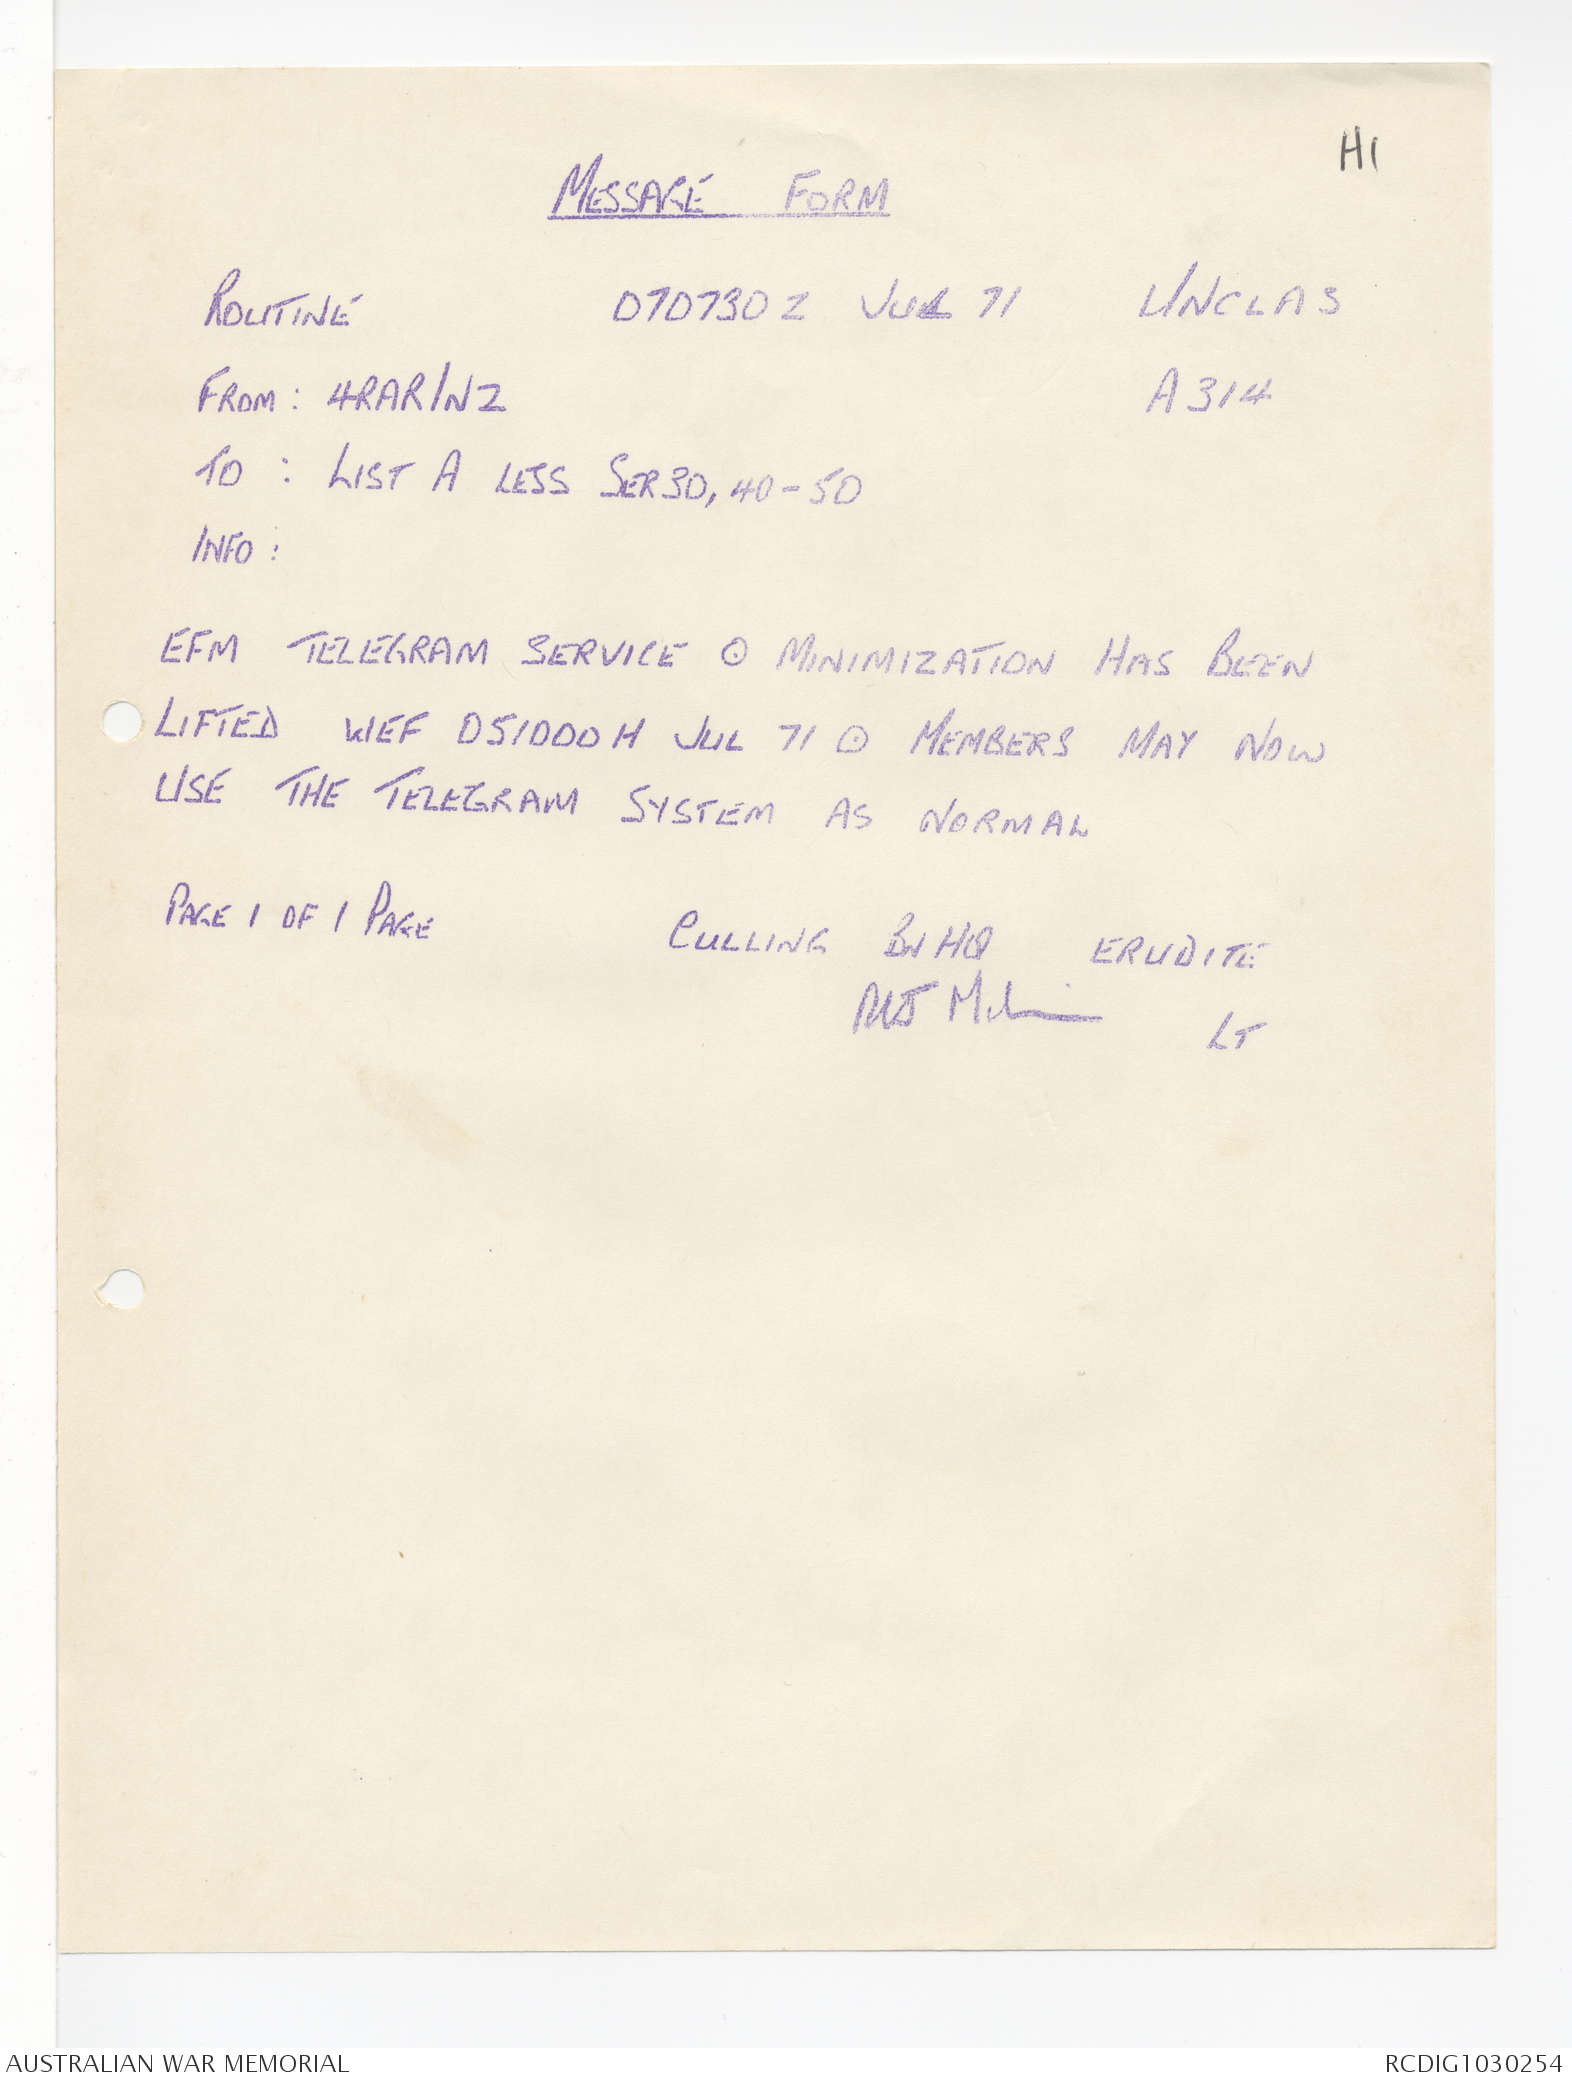 H1
MESSAGE FORM
ROUTINE 070730Z JUL 71 UNCLAS
FROM: 4RAR/NZ A314
TO : LIST A LESS SER30, 40-50
INFO :
EFM TELEGRAM SERVICE ⊙ MINIMIZATION HAS BEEN
LIFTED WEF 051000H JUL 71 ⊙ MEMBERS MAY NOW
USE THE TELEGRAM SYSTEM AS NORMAL
PAGE 1 OF 1 PAGE
CULLING BNHQ ERUDITE
LT
AUSTRALIAN WAR MEMORIAL RCDIG1030254